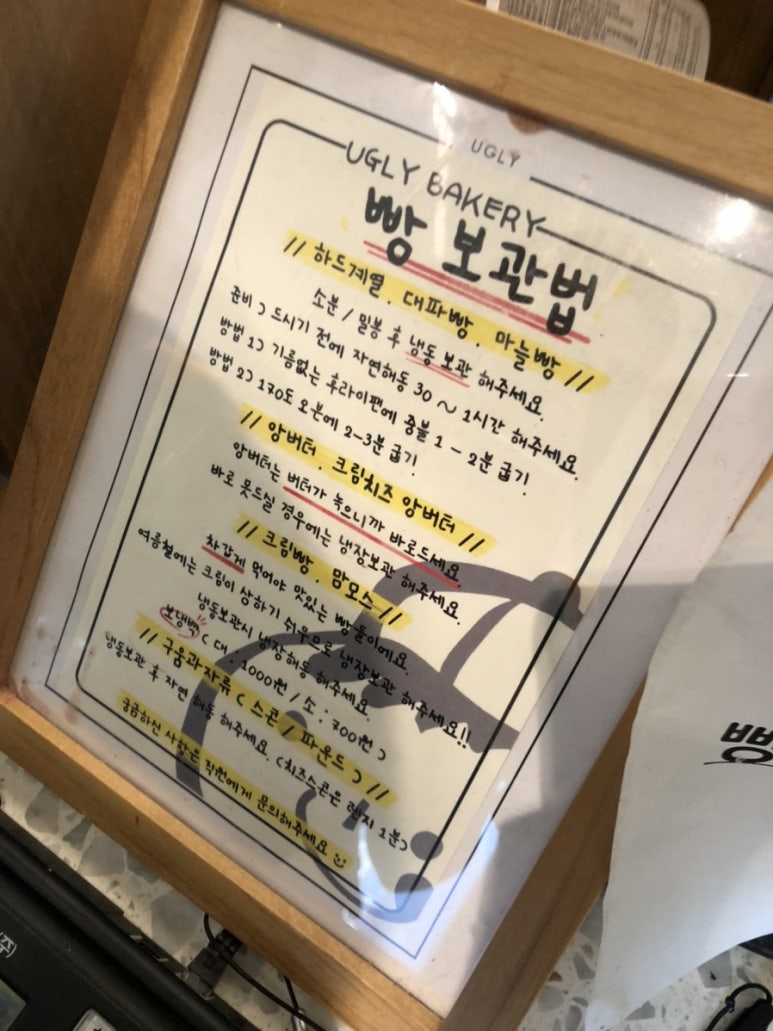 UGLY
UGLY BAKERY
빵 보관법
// 하드계열, 대파빵, 마늘빵 //
소분 / 밀봉 후 냉동 보관 해주세요.
준비 ) 드시기 전에 자연해동 30 ~ 1시간 해주세요.
방법 1) 기름없는 후라이팬에 중불 1 - 2분 굽기.
방법 2) 170도 오븐에 2-3분 굽기.
// 앙버터, 크림치즈 앙버터 //
앙버터는 버터가 녹으니까 바로드세요.
바로 못드실 경우에는 냉장보관 해주세요.
// 크림빵, 맘모스 //
차갑게 먹어야 맛있는 빵들이에요.
여름철에는 크림이 상하기 쉬우므로 냉장보관 해주세요!!
냉동보관시 냉장해동 해주세요.
보냉백 ( 대 : 1000원 / 소 : 700원 )
// 구움과자류 ( 스콘 / 파운드 ) //
냉동보관 후 자연 해동 해주세요. (치즈스콘은 렌지 1분)
궁금하신 사항은 직원에게 문의해주세요
빵
(주)